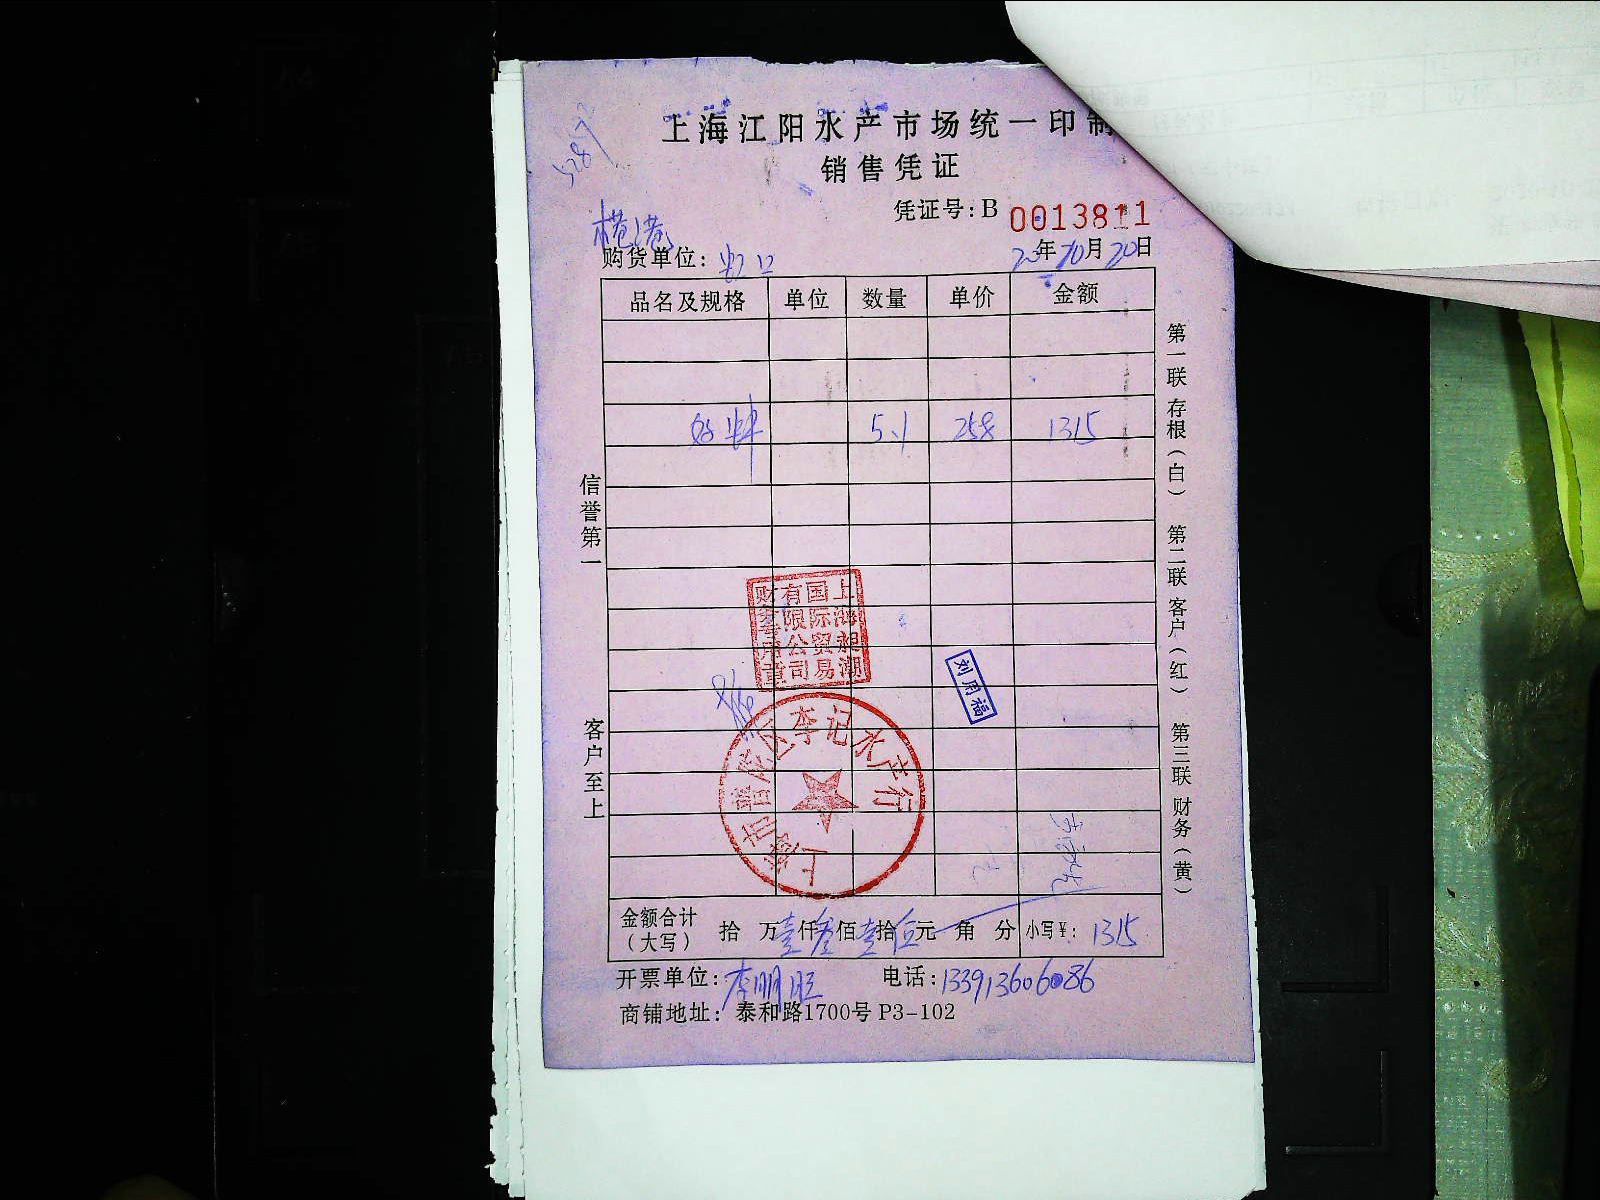 上海江阳水产市场统一印制
销售凭证
凭证号:B 0013811
5287
横港
购货单位: 虹口
20年10月20日
品名及规格 单位 数量 单价 金额
5.1 258 1315
信誉第一
客户至上
第一联 存根(白) 第二联 客户(红) 第三联 财务(黄)
上海昶潮国际贸易有限公司财务专用章
刘用福
上海市普陀区李记水产行
金额合计(大写) 拾 万壹仟叁佰壹拾伍元 角 分 小写¥: 1315
开票单位: 李明旺 电话:133913606086
商铺地址: 泰和路1700号 P3-102